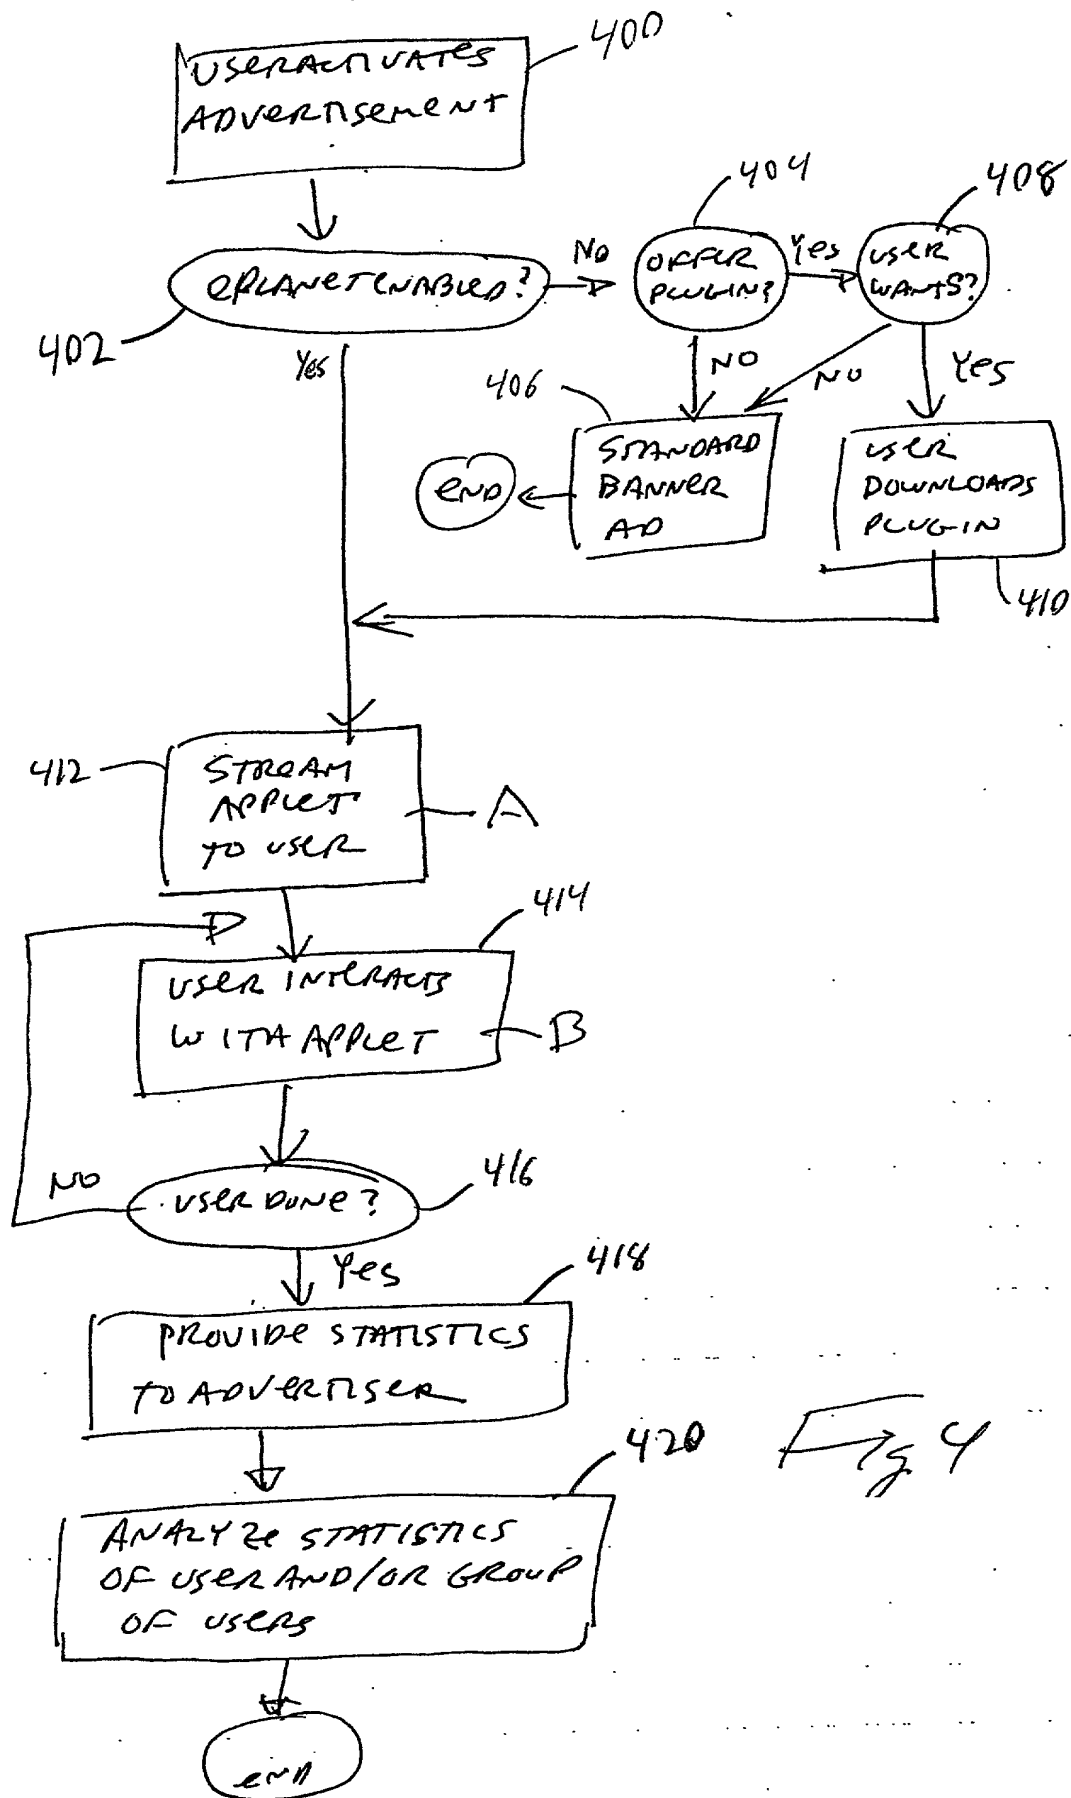 400
USER ACTIVATES
ADVERTISEMENT
404
408
EPLANET ENABLED?
No
OFFER
PLUGIN?
Yes
USER
WANTS?
402
Yes
NO
NO
Yes
406
STANDARD
BANNER
AD
END
USER
DOWNLOADS
PLUGIN
410
412
STREAM
APPLET
TO USER
A
414
USER INTERACTS
WITH APPLET
B
NO
USER DONE?
416
Yes
418
PROVIDE STATISTICS
TO ADVERTISER
420
Fig 4
ANALYZE STATISTICS
OF USER AND/OR GROUP
OF USERS
END